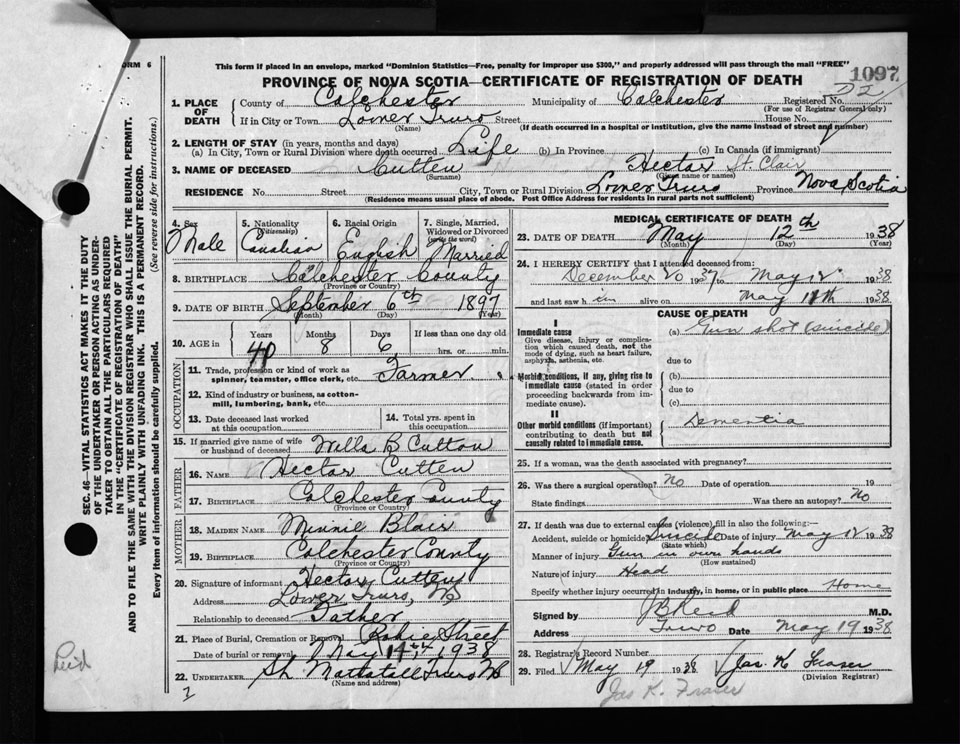 ORM 6
This form if placed in an envelope, marked "Dominion Statistics—Free, penalty for improper use $300," and properly addressed will pass through the mail "FREE"
PROVINCE OF NOVA SCOTIA—CERTIFICATE OF REGISTRATION OF DEATH
1097
D2
1. PLACE OF DEATH
County of Colchester Municipality of Colchester Registered No.
(For use of Registrar General only)
If in City or Town Lower Truro Street House No.
(Name) (If death occurred in a hospital or institution, give the name instead of street and number)
2. LENGTH OF STAY (in years, months and days)
(a) In City, Town or Rural Division where death occurred Life (b) In Province (c) In Canada (if immigrant)
3. NAME OF DECEASED Cutten Hector St. Clair
(Surname) (Given name or names)
RESIDENCE No. Street City, Town or Rural Division Lower Truro Province Nova Scotia
(Residence means usual place of abode. Post Office Address for residents in rural parts not sufficient)
4. Sex Male
5. Nationality (Citizenship) Canadian
6. Racial Origin English
7. Single, Married, Widowed or Divorced (write the word) Married
8. BIRTHPLACE Colchester County
(Province or Country)
9. DATE OF BIRTH September 6th 1897
(Month) (Day) (Year)
10. AGE in Years 40 Months 8 Days 6 If less than one day old
hrs. or min.
OCCUPATION
11. Trade, profession or kind of work as spinner, teamster, office clerk, etc. Farmer
12. Kind of industry or business, as cotton-mill, lumbering, bank, etc.
13. Date deceased last worked at this occupation
14. Total yrs. spent in this occupation
15. If married give name of wife or husband of deceased Willa B Cutton
FATHER
16. NAME Hector Cutten
17. BIRTHPLACE Colchester County
(Province or Country)
MOTHER
18. MAIDEN NAME Minnie Blair
19. BIRTHPLACE Colchester County
(Province or Country)
20. Signature of informant Hector Cutten
Address Lower Truro, NS
Relationship to deceased Father
21. Place of Burial, Cremation or Removal Robie Street
Date of burial or removal May 14th 1938
22. UNDERTAKER Mattatall Truro NS
(Name and address)
MEDICAL CERTIFICATE OF DEATH
23. DATE OF DEATH May 12th 1938
(Month) (Day) (Year)
24. I HEREBY CERTIFY that I attended deceased from:
December 20 1937 to May 12 1938
and last saw him alive on May 11th 1938
CAUSE OF DEATH
I
Immediate cause
Give disease, injury or complication which caused death, not the mode of dying, such as heart failure, asphyxia, asthenia, etc.
(a) Gun shot (suicide)
due to
Morbid conditions, if any, giving rise to immediate cause (stated in order proceeding backwards from immediate cause).
(b)
due to
(c)
II
Other morbid conditions (if important) contributing to death but not causally related to immediate cause.
Dementia
25. If a woman, was the death associated with pregnancy?
26. Was there a surgical operation? No Date of operation 19
State findings Was there an autopsy? No
27. If death was due to external causes (violence) fill in also the following:—
Accident, suicide or homicide Suicide Date of injury May 12 1938
(State which)
Manner of injury Gun in own hands
(How sustained)
Nature of injury Head
Specify whether injury occurred in industry, in home, or in public place Home
Signed by J B Reid M.D.
Address Truro Date May 19 1938
28. Registrar's Record Number
29. Filed May 19 1938 Jas K Fraser
(Division Registrar)
Jas K. Fraser
SEC. 46—VITAL STATISTICS ACT MAKES IT THE DUTY
OF THE UNDERTAKER OR PERSON ACTING AS UNDER-
TAKER TO OBTAIN ALL THE PARTICULARS REQUIRED
IN THE "CERTIFICATE OF REGISTRATION OF DEATH"
AND TO FILE THE SAME WITH THE DIVISION REGISTRAR WHO SHALL ISSUE THE BURIAL PERMIT.
WRITE PLAINLY WITH UNFADING INK. THIS IS A PERMANENT RECORD.
Every item of information should be carefully supplied. (See reverse side for instructions.)
Reid